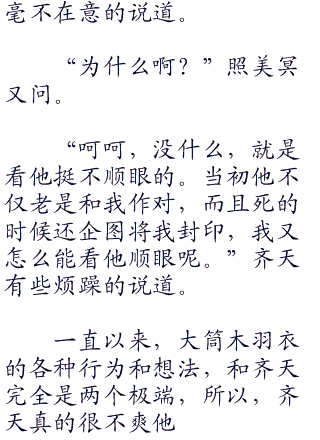 毫不在意的说道。
“为什么啊？”照美冥
又问。
“呵呵，没什么，就是
看他挺不顺眼的。当初他不
仅老是和我作对，而且死的
时候还企图将我封印，我又
怎么能看他顺眼呢。”齐天
有些烦躁的说道。
一直以来，大筒木羽衣
的各种行为和想法，和齐天
完全是两个极端，所以，齐
天真的很不爽他